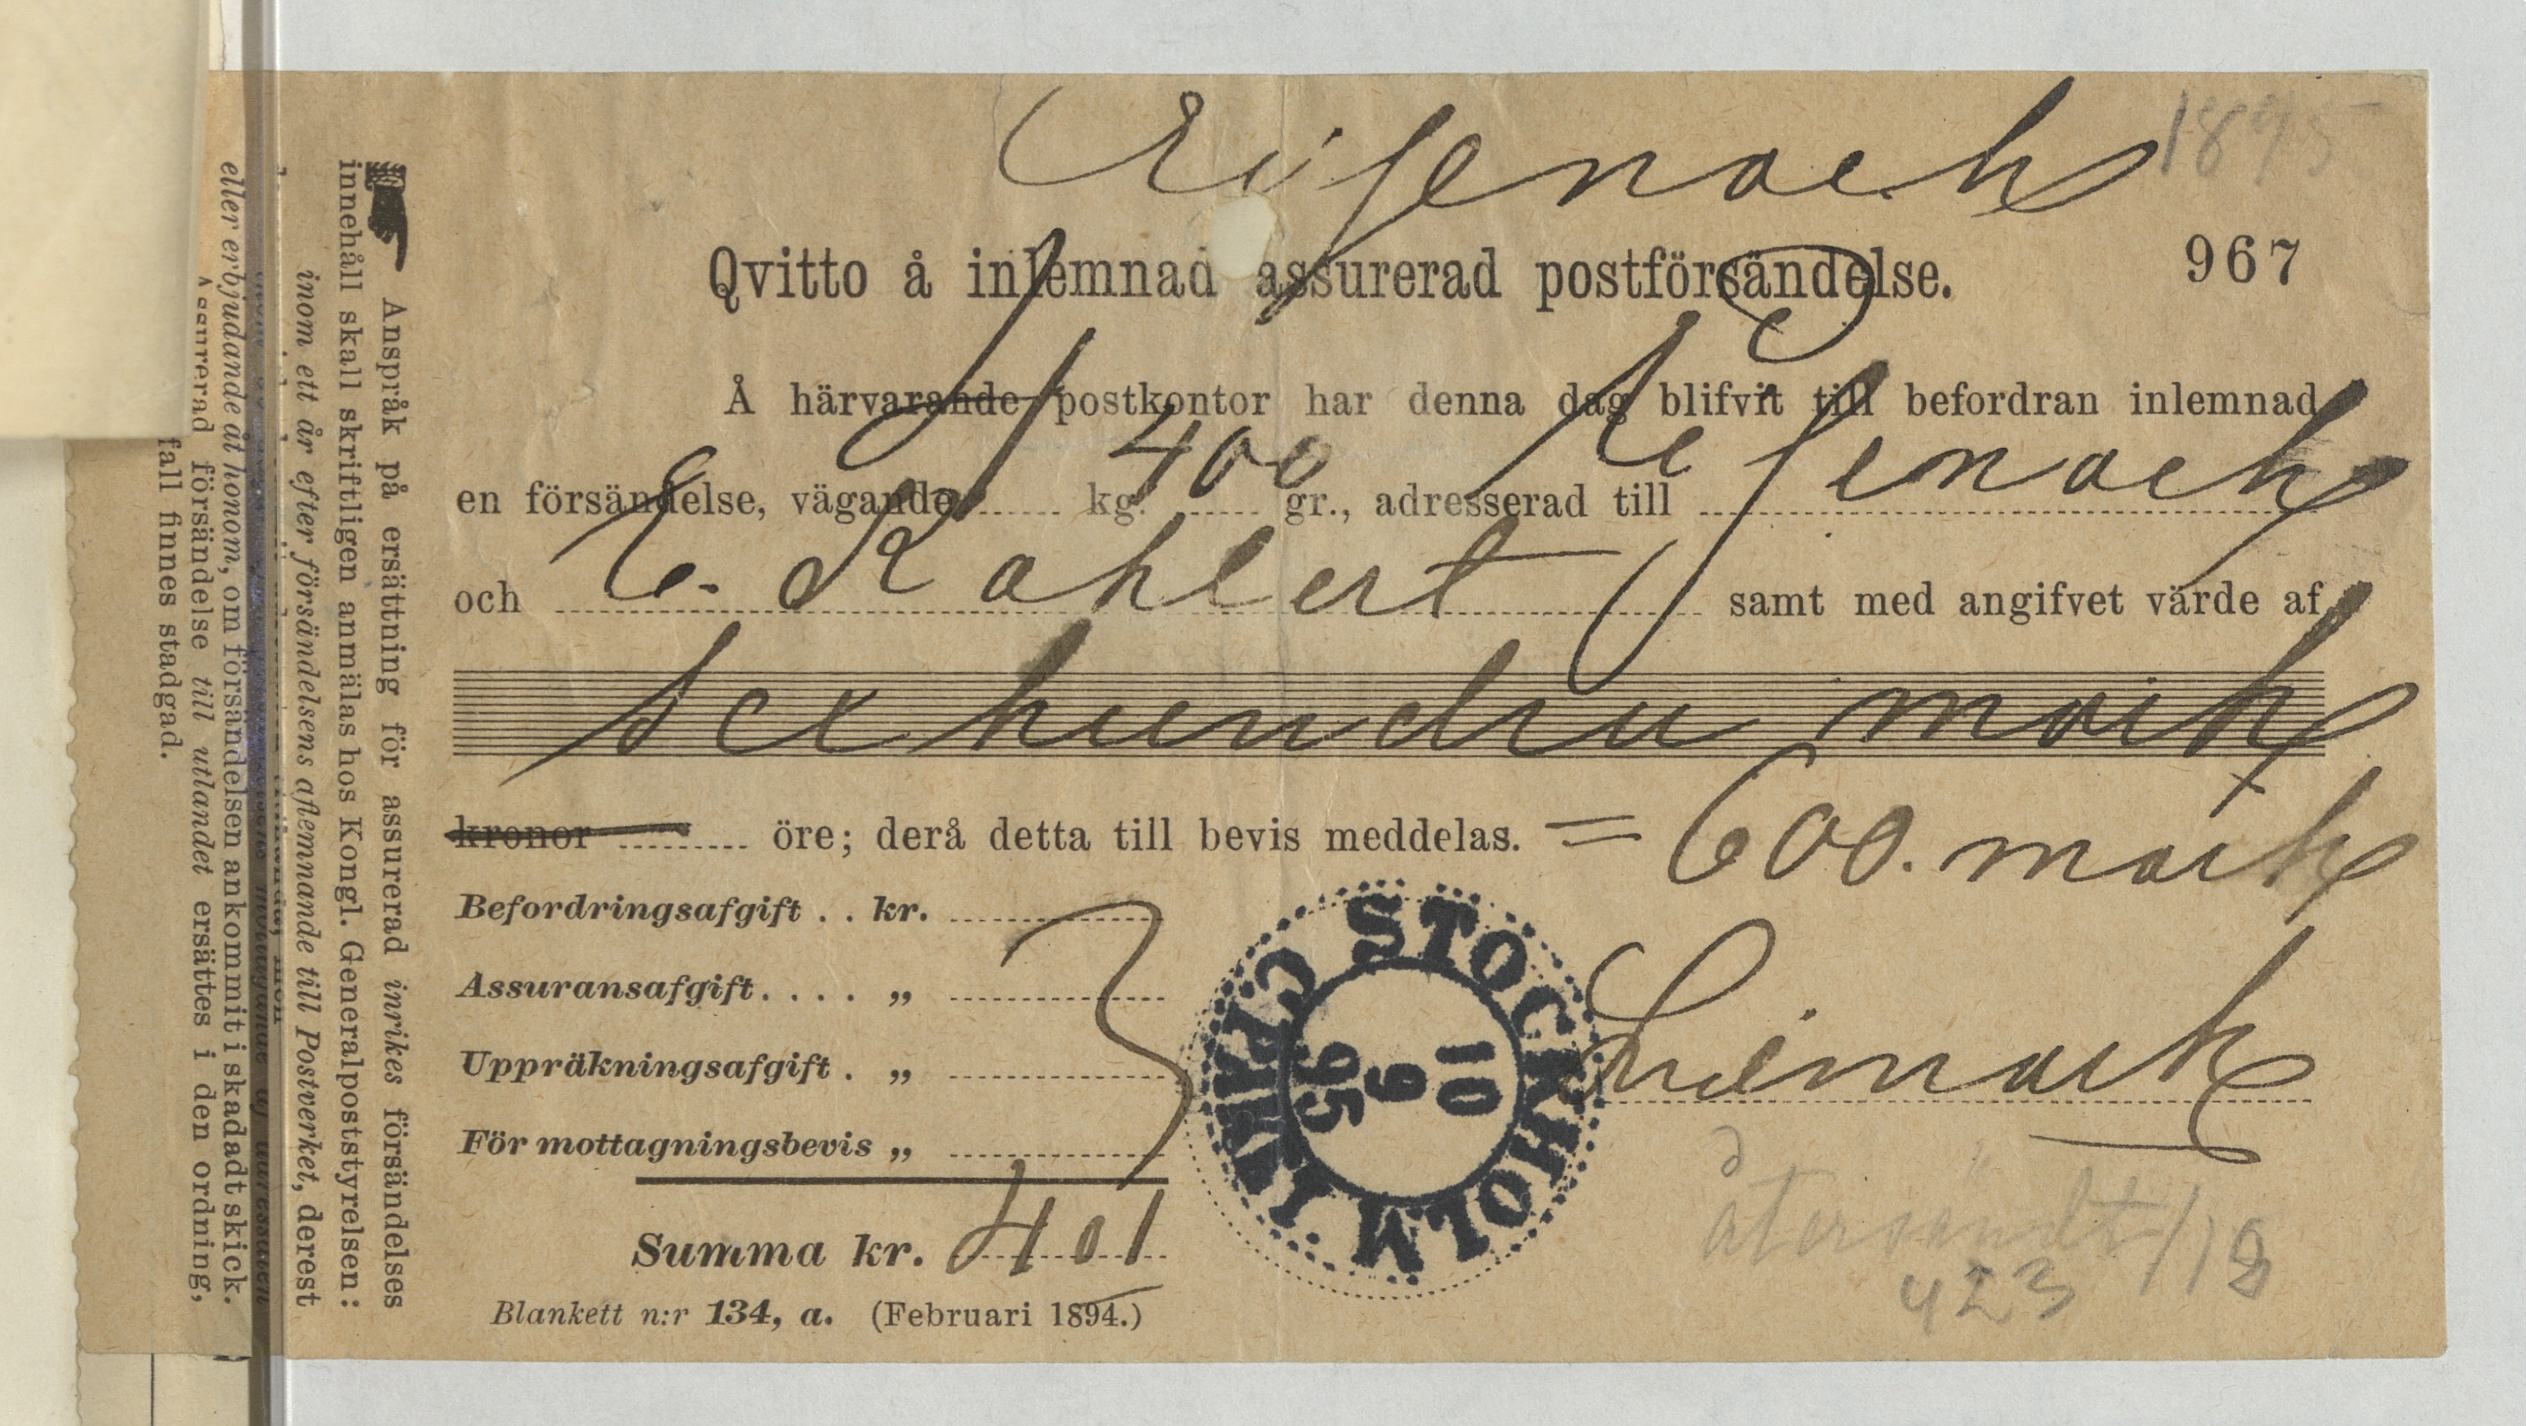 Eisenach
1895
Qvitto å inlemnad assurerad postförsändelse.
967
Å härvarande postkontor har denna dag blifvit till befordran inlemnad
en försändelse, vägande kg. 400 gr., adresserad till Eisenach
och E. Kahlert samt med angifvet värde af
Sex hundra mark
kronor öre; derå detta till bevis meddelas. = 600. mark
Befordringsafgift . . kr.
Assuransafgift . . . . „
Uppräkningsafgift . „
För mottagningsbevis „
Summa kr. 401
Blankett n:r 134, a. (Februari 1894.)
STOCKHOLM 1. AFG.
10
9
95
återsändt
423
Anspråk på ersättning för assurerad inrikes försändelses
innehåll skall skriftligen anmälas hos Kongl. Generalpoststyrelsen:
inom ett år efter försändelsens aflemnande till Postverket, derest
eller erbjudande åt honom, om försändelsen ankommit i skadadt skick.
Assurerad försändelse till utlandet ersättes i den ordning,
fall finnes stadgad.